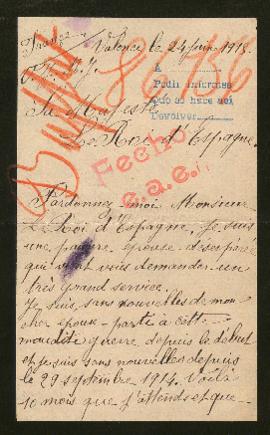 France
Valence le 24 juin 1915.
A
Pedir informes
Que se hace así
Devolver
Sa Majesté
Le Roi d'Espagne.
Fecho
Pardonnez moi Monsieur
Le Roi d'Espagne, Je suis
une pauvre épouse désespérée
qui vient vous demander un
très grand service.
Je suis sans nouvelles de mon
cher époux - parti à cette
maudite guerre depuis le début
et je suis sans nouvelles depuis
le 29 septembre 1914. Voilà
10 mois que j'attends et que